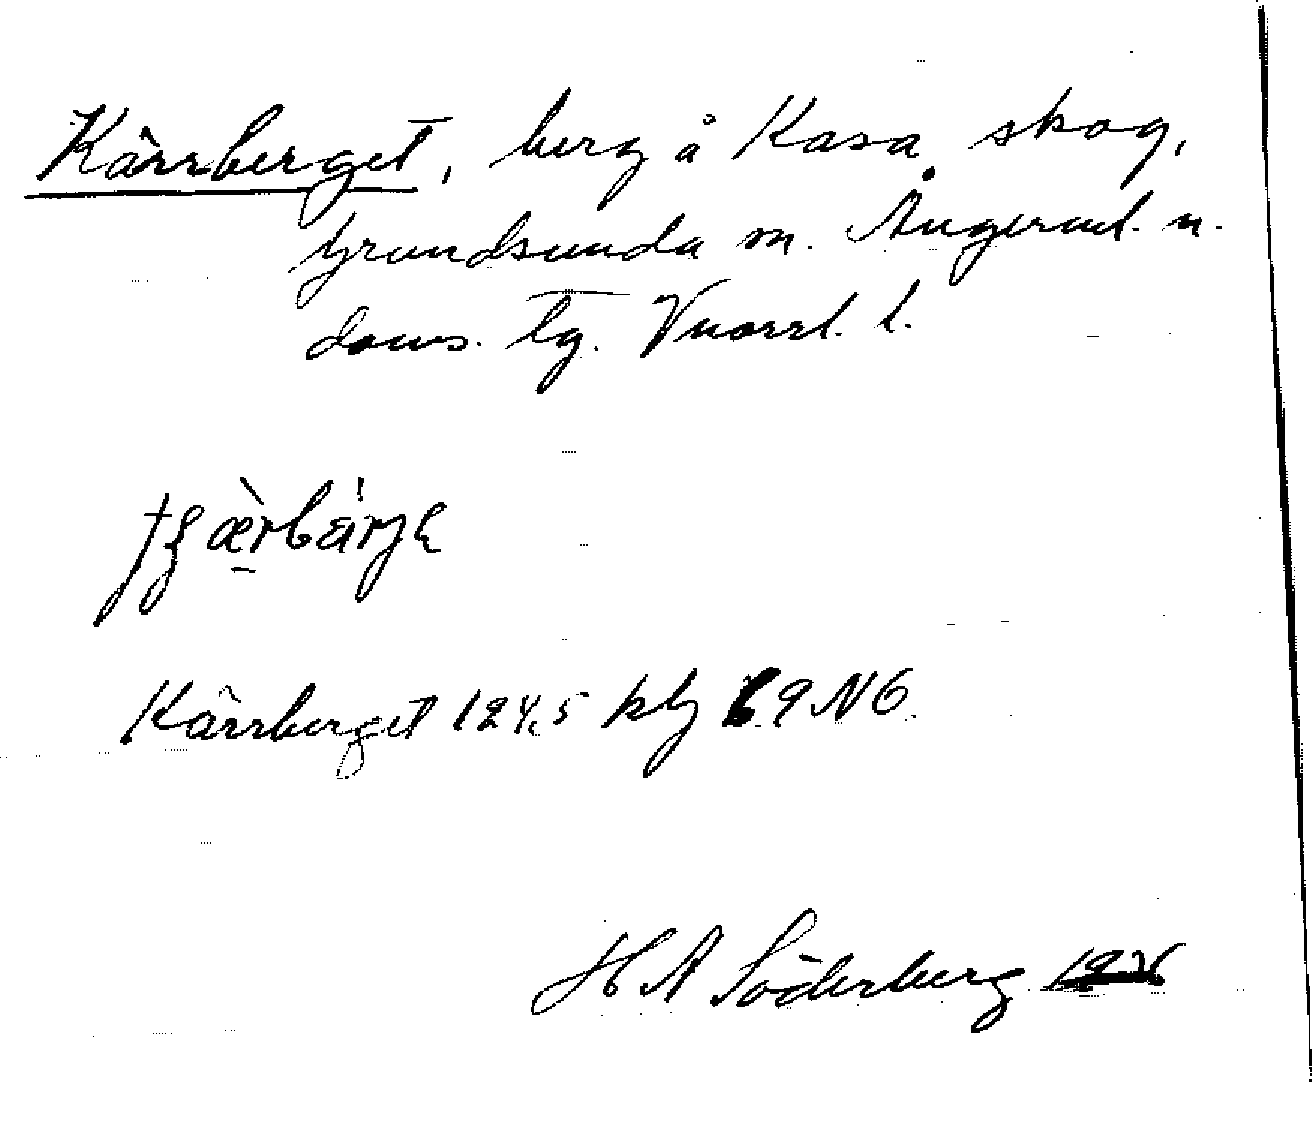 Kärrberget, berg å Kasa skog,
Grundsunda sn. Ångerml. n.
doms. tg. Vnorrl. l.
Kärrberget 124,5 kbj 69 NO
H A Söderberg 1926